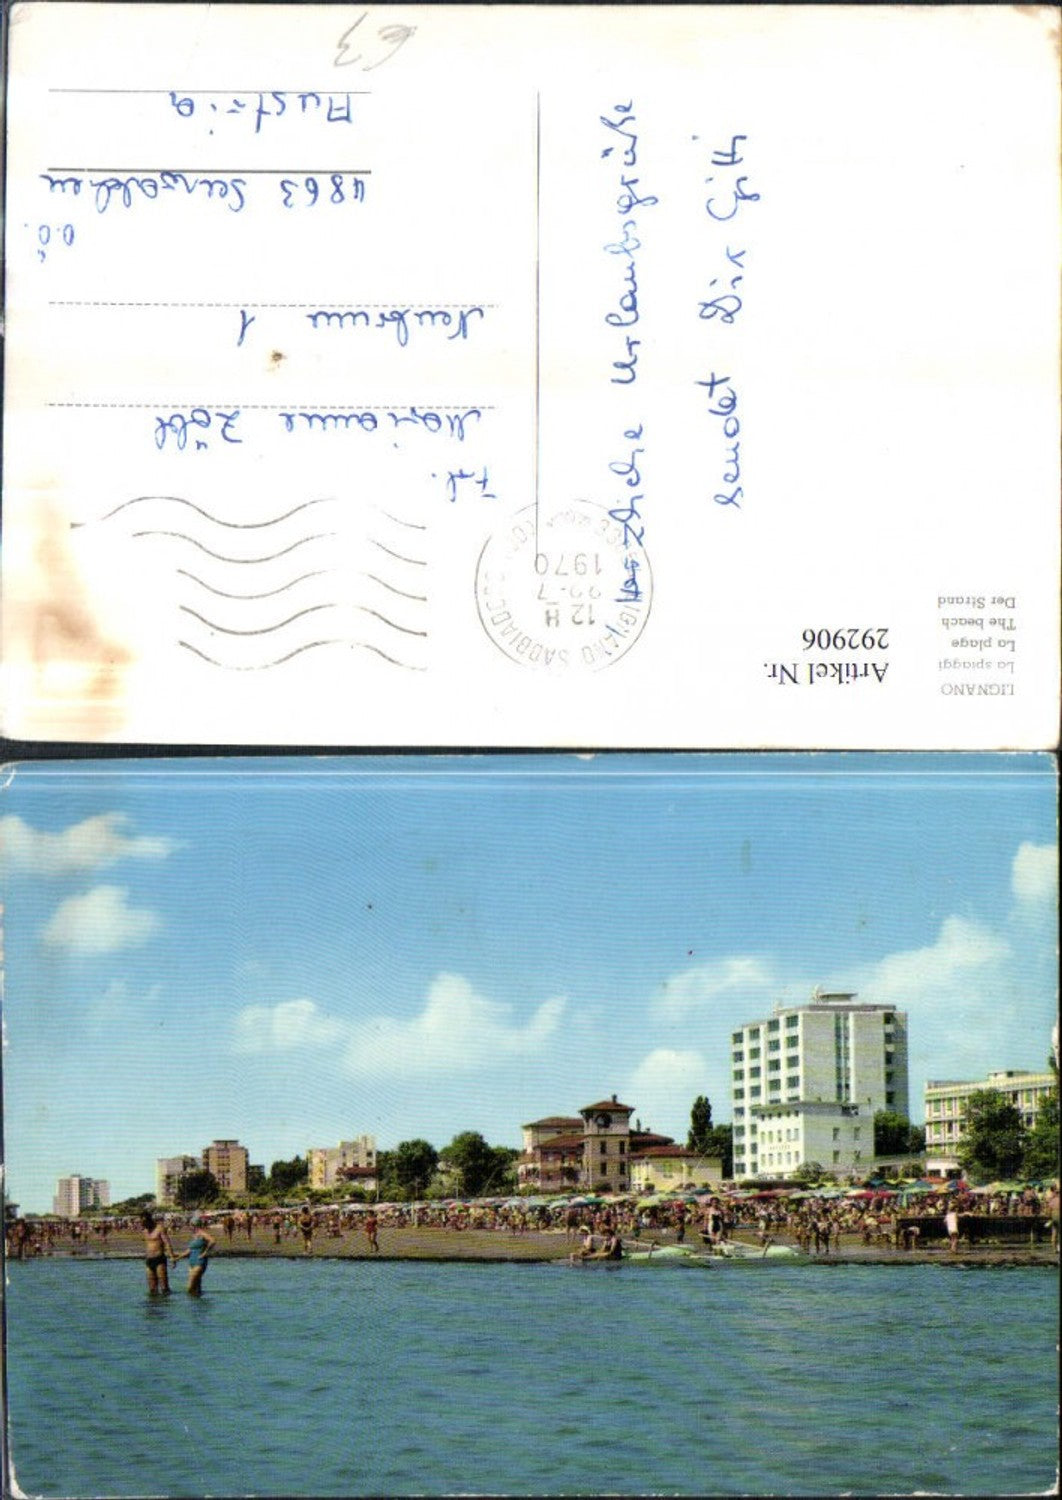 LIGNANO
La spiaggi
La plage
The beach
Der Strand
Artikel Nr.
292906
Herzliche Urlaubsgrüße
sendet Dir Gitti
LIGNANO SABBIADORO
12 H
22-7
1970
Frl.
Marianne Zöbl
Neubrunn 1
4863 Seewalchen
O.Ö.
Austria
€3